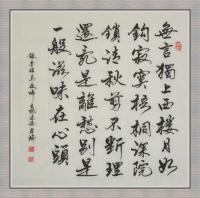 無言獨上西樓月如
鈎寂寞梧桐深院
鎖清秋剪不斷理
還亂是離愁別是
一般滋味在心頭